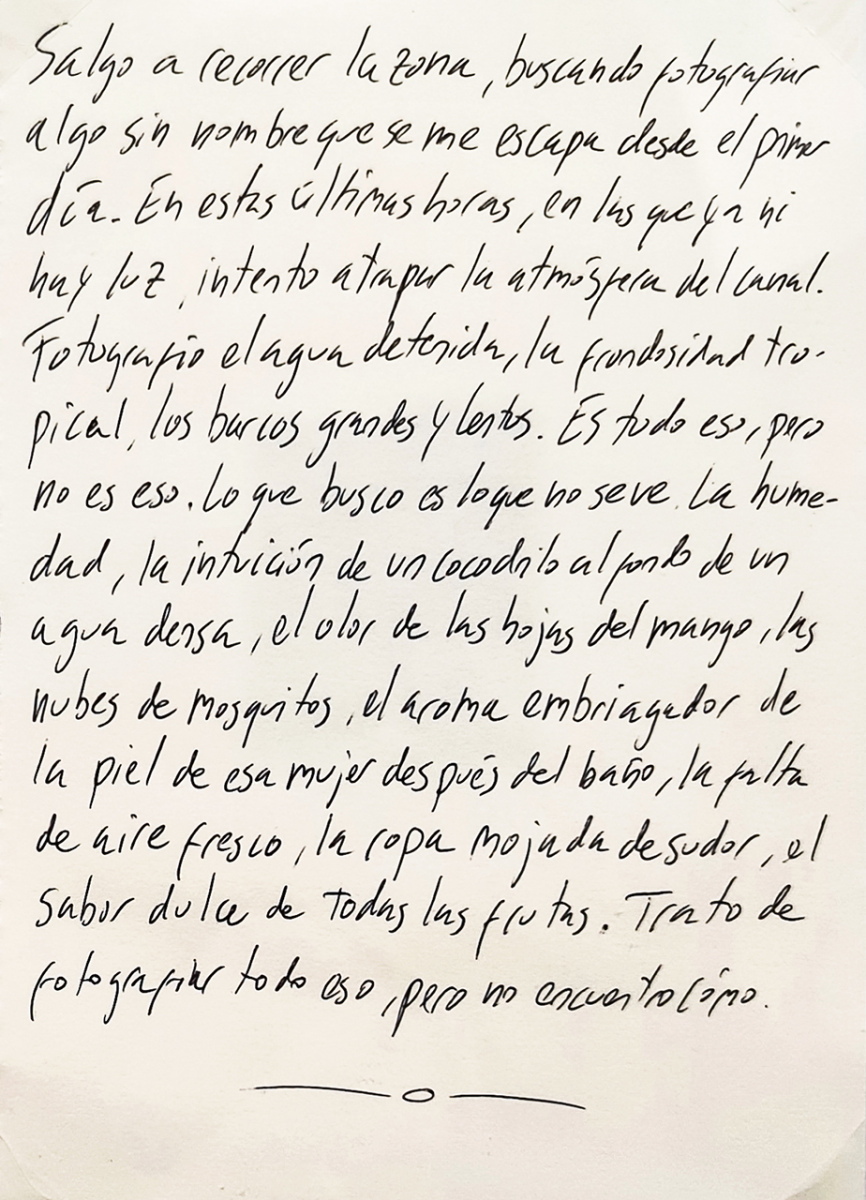 Salgo a recorrer la zona, buscando fotografiar
algo sin nombre que se me escapa desde el primer
día. En estas últimas horas, en las que ya ni
hay luz, intento atrapar la atmósfera del canal.
Fotografío el agua detenida, la frondosidad tro-
pical, los barcos grandes y lentos. Es todo eso, pero
no es eso. Lo que busco es lo que no se ve. La hume-
dad, la intuición de un cocodrilo al fondo de un
agua densa, el olor de las hojas del mango, las
nubes de mosquitos, el aroma embriagador de
la piel de esa mujer después del baño, la falta
de aire fresco, la ropa mojada de sudor, el
sabor dulce de todas las frutas. Trato de
fotografiar todo eso, pero no encuentro cómo.